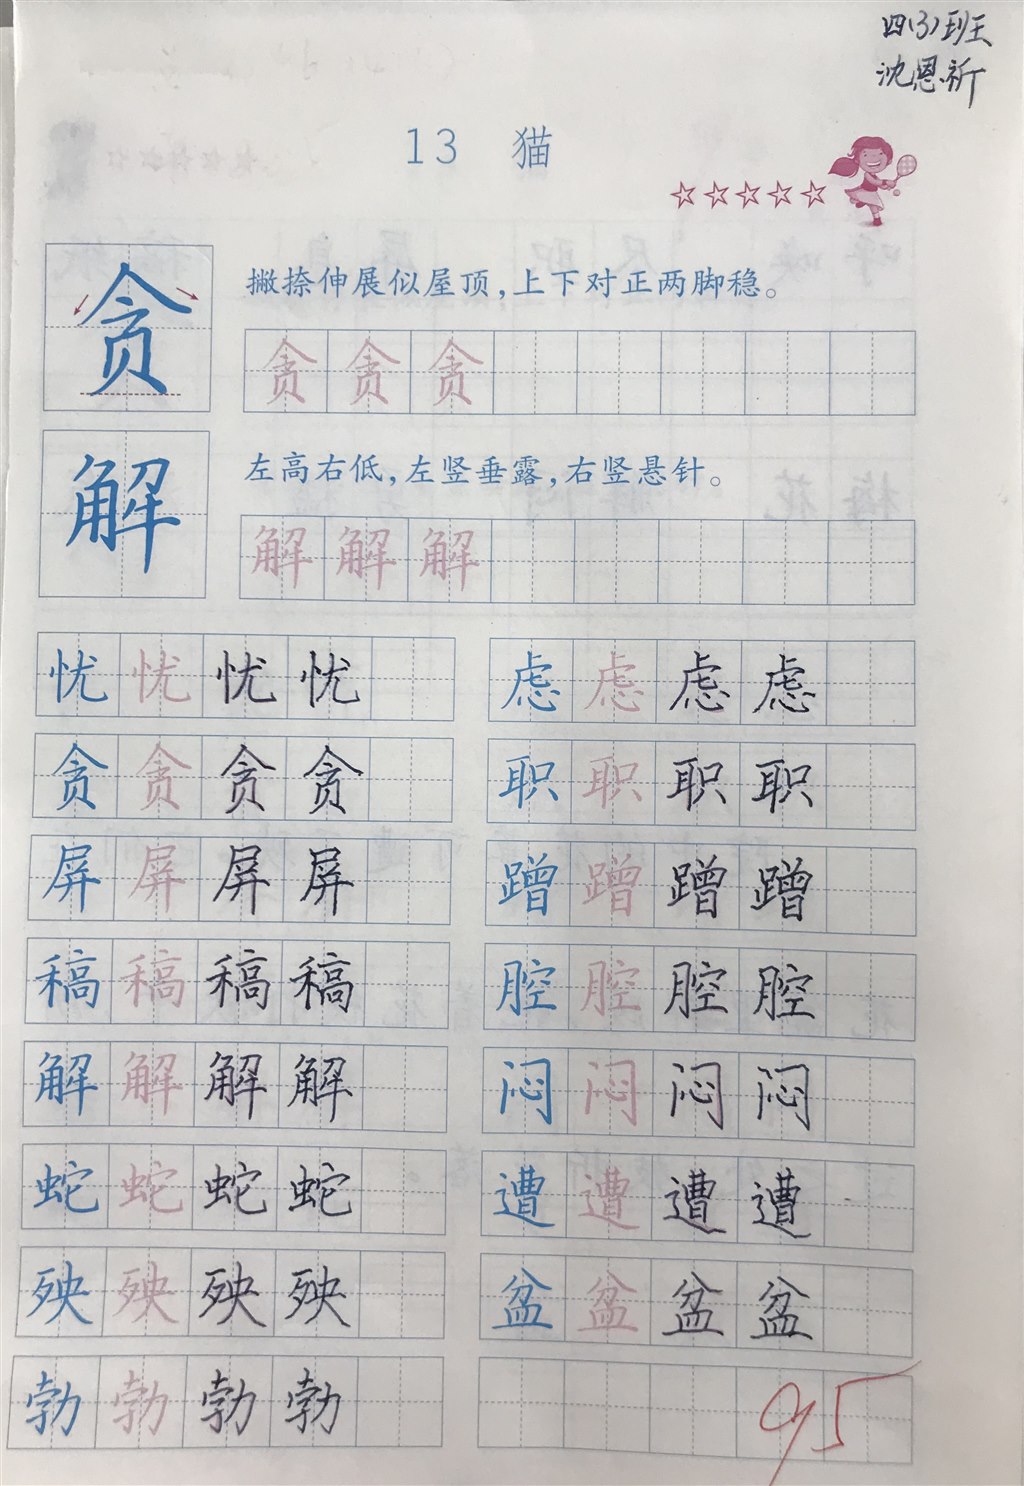 四(3)班
沈恩祈
13 猫
☆☆☆☆☆
贪 撇捺伸展似屋顶,上下对正两脚稳。
贪贪贪
解 左高右低,左竖垂露,右竖悬针。
解解解
忧忧忧忧 虑虑虑虑
贪贪贪贪 职职职职
屏屏屏屏 蹭蹭蹭蹭
稿稿稿稿 腔腔腔腔
解解解解 闷闷闷闷
蛇蛇蛇蛇 遭遭遭遭
殃殃殃殃 盆盆盆盆
勃勃勃勃
95